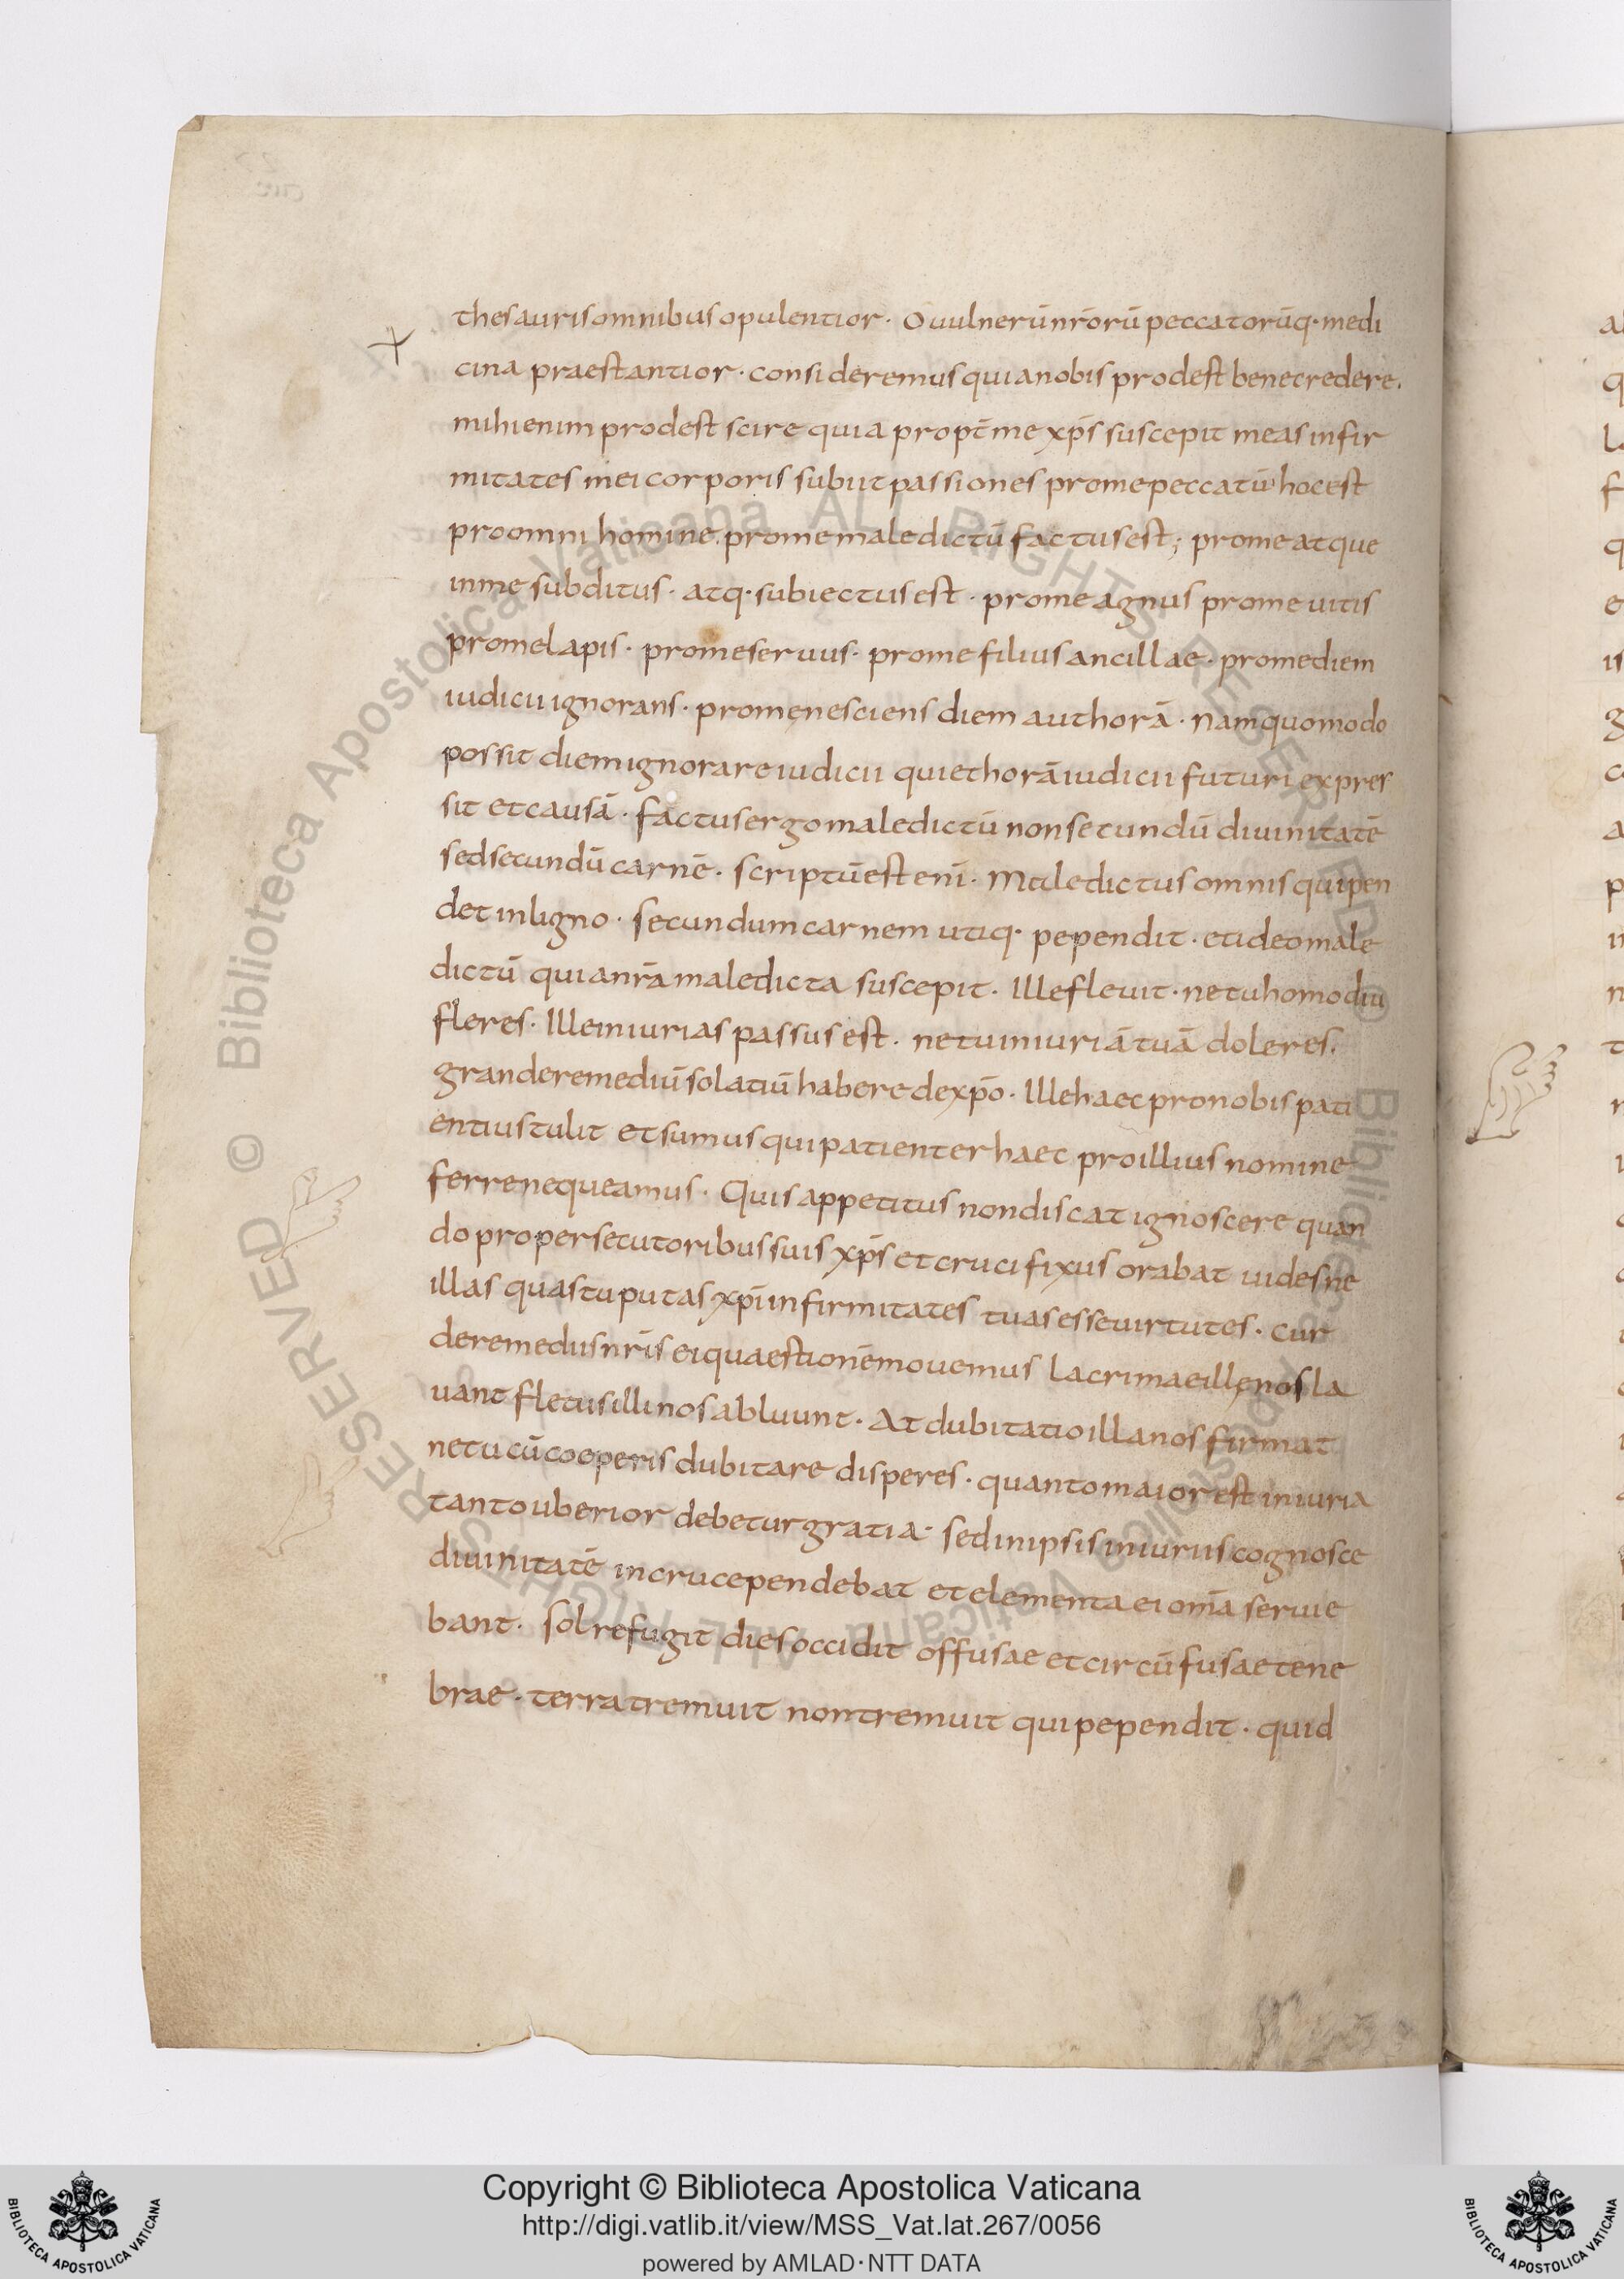 thesauris omnibus opulentior · O uulnerū nr̄orū peccatorūq· medi
cina praestantior · consideremus quia nobis prodest bene credere.
mihi enim prodest scire quia propt̄ me xp̄s suscepit meas infir
mitates mei corporis subiit passiones pro me peccatū hoc est
pro omni homine. pro me maledictū factus est; pro me atque
in me subditus · atq· subiectus est · pro me agnus pro me uitis
pro me lapis · pro me seruus · pro me filius ancillae · pro me diem
iudicii ignorans · pro me nesciens diem aut horā · Nam quomodo
possit diem ignorare iudicii qui et horā iudicii futuri expres
sit et causā · factus ergo maledictū non secundū diuinitatē
sed secundū carnē · scriptū est eni̅ · Maledictus omnis qui pen
det in ligno · secundum carnem utiq· pependit · et ideo male
dictū quia nr̄a maledicta suscepit · Ille fleuit · ne tu homo diu
fleres · Ille iniurias passus est · ne tu iniuriā tuā doleres.
grande remediū solatiū habere de xp̄o · Ille haec pro nobis pati
entius tulit et sumus qui patienter haec pro illius nomine
ferre nequeamus · Quis appetitus non discat ignoscere quan
do pro persecutoribus suis xp̄s et crucifixus orabat uidesne
illas quas tu putas xp̄i infirmitates tuas esse uirtutes · cur
de remediis nr̄is ei quaestionē mouemus lacrimae illę nos la
uant fletus illi nos abluunt · At dubitatio illa nos firmat
ne tu cū coeperis dubitare disperes · quanto maior est iniuria
tanto uberior debetur gratia · sed in ipsis iniuriis cognosce
diuinitatē in cruce pendebat et elementa ei om̄a seruie
bant · sol refugit dies occidit offusae et circūfusae tene
brae · terra tremuit non tremuit qui pependit · quid
Copyright © Biblioteca Apostolica Vaticana
http://digi.vatlib.it/view/MSS_Vat.lat.267/0056
powered by AMLAD·NTT DATA
BIBLIOTECA APOSTOLICA VATICANA
BIBLIOTECA APOSTOLICA VATICANA
© Biblioteca Apostolica Vaticana ALL RIGHTS RESERVED
© Biblioteca Apostolica Vaticana ALL RIGHTS RESERVED